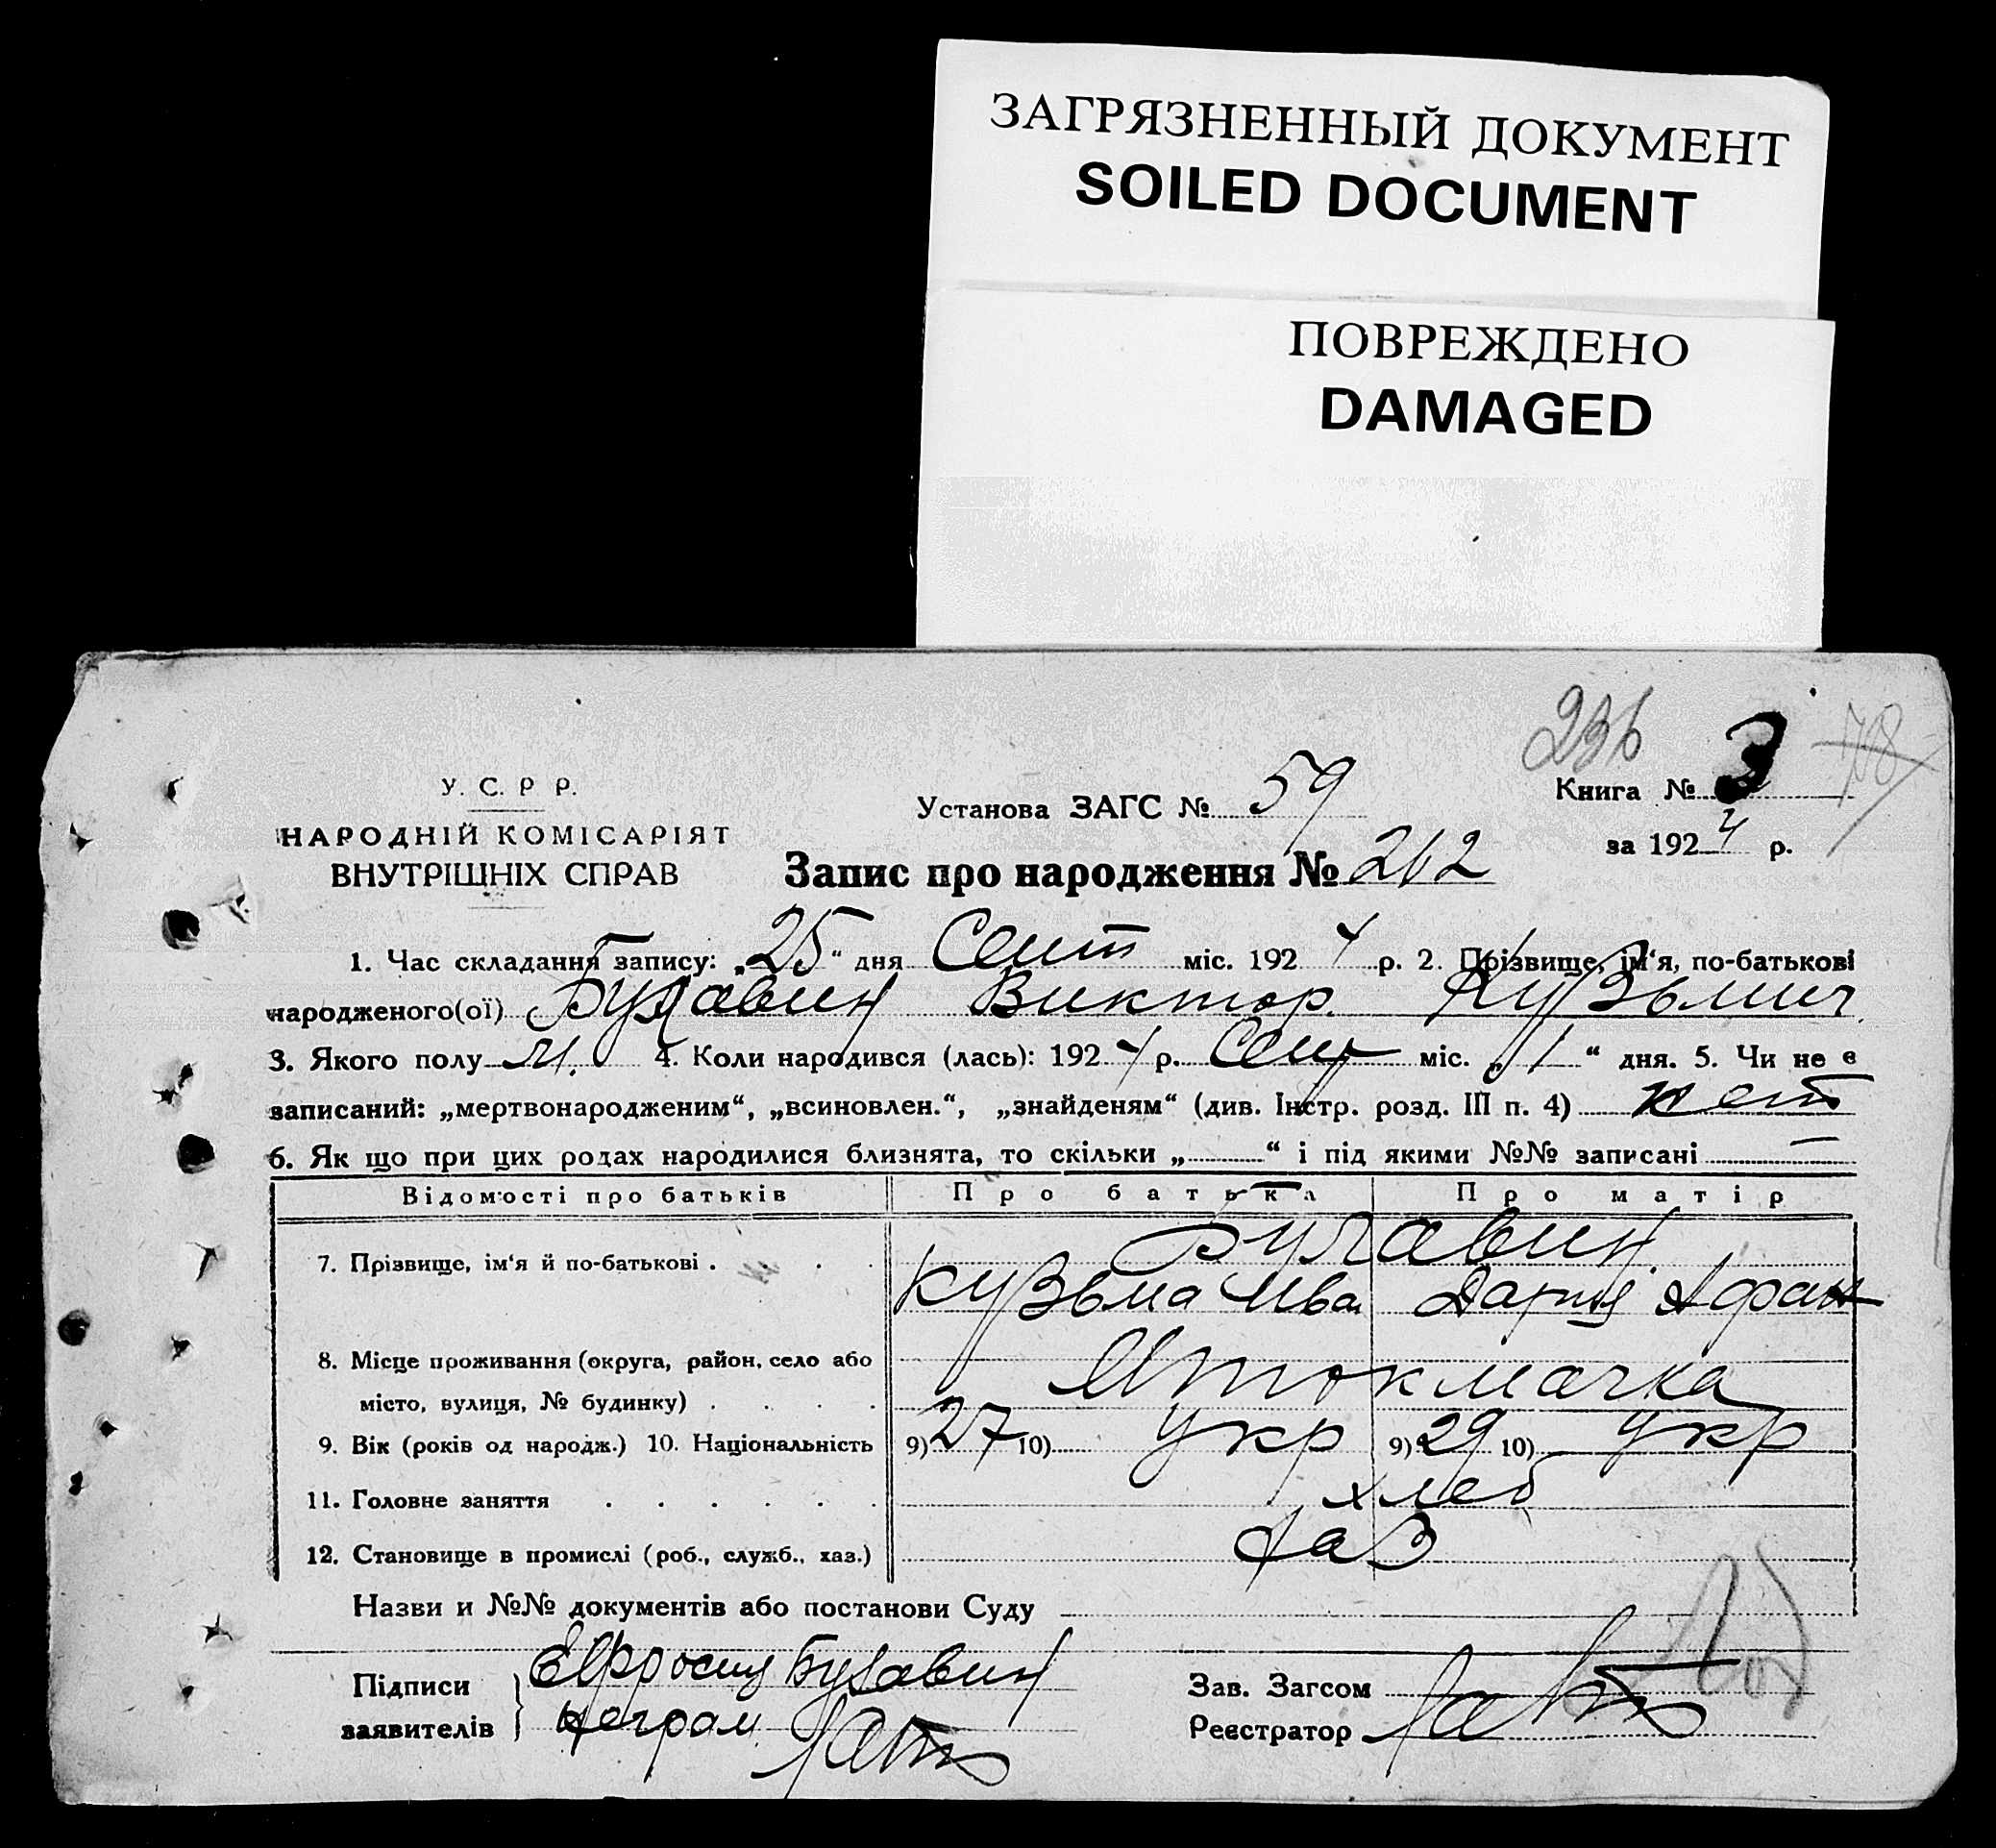 ЗАГРЯЗНЕННЫЙ ДОКУМЕНТ
SOILED DOCUMENT
ПОВРЕЖДЕНО
DAMAGED
236 78
У. С. Р Р.
НАРОДНІЙ КОМІСАРІЯТ
ВНУТРІШНІХ СПРАВ
Установа ЗАГС № 59
Книга № 3
за 1924 р.
Запис про народження № 262
1. Час складання запису: „25“ дня Сент міс. 1924 р. 2. Прізвище, ім‘я, по-батькові
народженого(ої) Булавин Виктор. Кузьмич.
3. Якого полу м. 4. Коли народився (лась): 1924 р. Сент міс. „1“ дня. 5. Чи не є
записаний: „мертвонародженим“, „всиновлен.“, „знайденям“ (див. Інстр. розд. III п. 4) нет
6. Як що при цих родах народилися близнята, то скільки „ “ і під якими №№ записані —
Відомості про батьків Про батька Про матір
Булавин
7. Прізвище, ім‘я й по-батькові . . .
Кузьма Ива Дария Афан
8. Місце проживання (округа, район, село або
місто, вулиця, № будинку) . . . .
9. Вік (років од народж.) 10. Національність 9) 27 10) Укр 9) 29 10) Укр
11. Головне заняття . . . . . . хлеб
12. Становище в промислі (роб., служб., хаз.) хаз
Назви и №№ документів або постанови Суду
Підписи заявителів } Ефросин Булавин
неграм
Зав. Загсом
Реєстратор